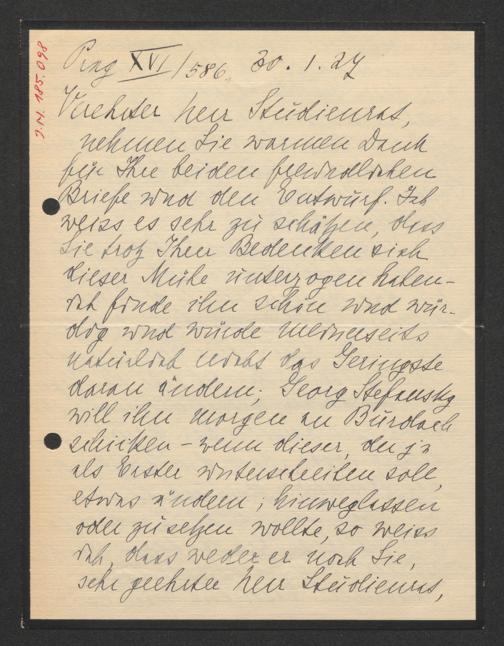 J.N. 185.098
Prag XVI/586. 30.1.27
Verehrter Herr Studienrat,
nehmen Sie warmen Dank
für Ihre beiden freundlichen
Briefe und den Entwurf. Ich
weiss es sehr zu schätzen, dass
Sie trotz Ihren Bedenken sich
dieser Mühe unterzogen haben –
ich finde ihn schön und wür-
dig und würde meinerseits
natürlich nicht das Geringste
daran ändern; Georg Stefansky
will ihn morgen an Burdach
schicken – wenn dieser, der ja
als Erster unterschreiben soll,
etwas ändern, hinweglassen
oder zusetzen wollte, so weiss
ich, dass weder er noch Sie,
sehr geehrter Herr Studienrat,